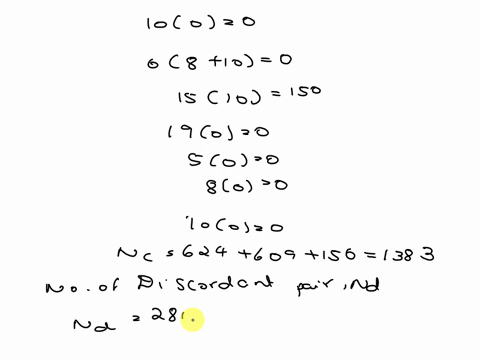 10(0)=0
0(8+10)=0
15(10)=150
19(0)=0
5(0)=0
8(0)=0
10(0)=0
Nc=624+609+150=1383
No. of Discordant pair, Nd
Nd = 28